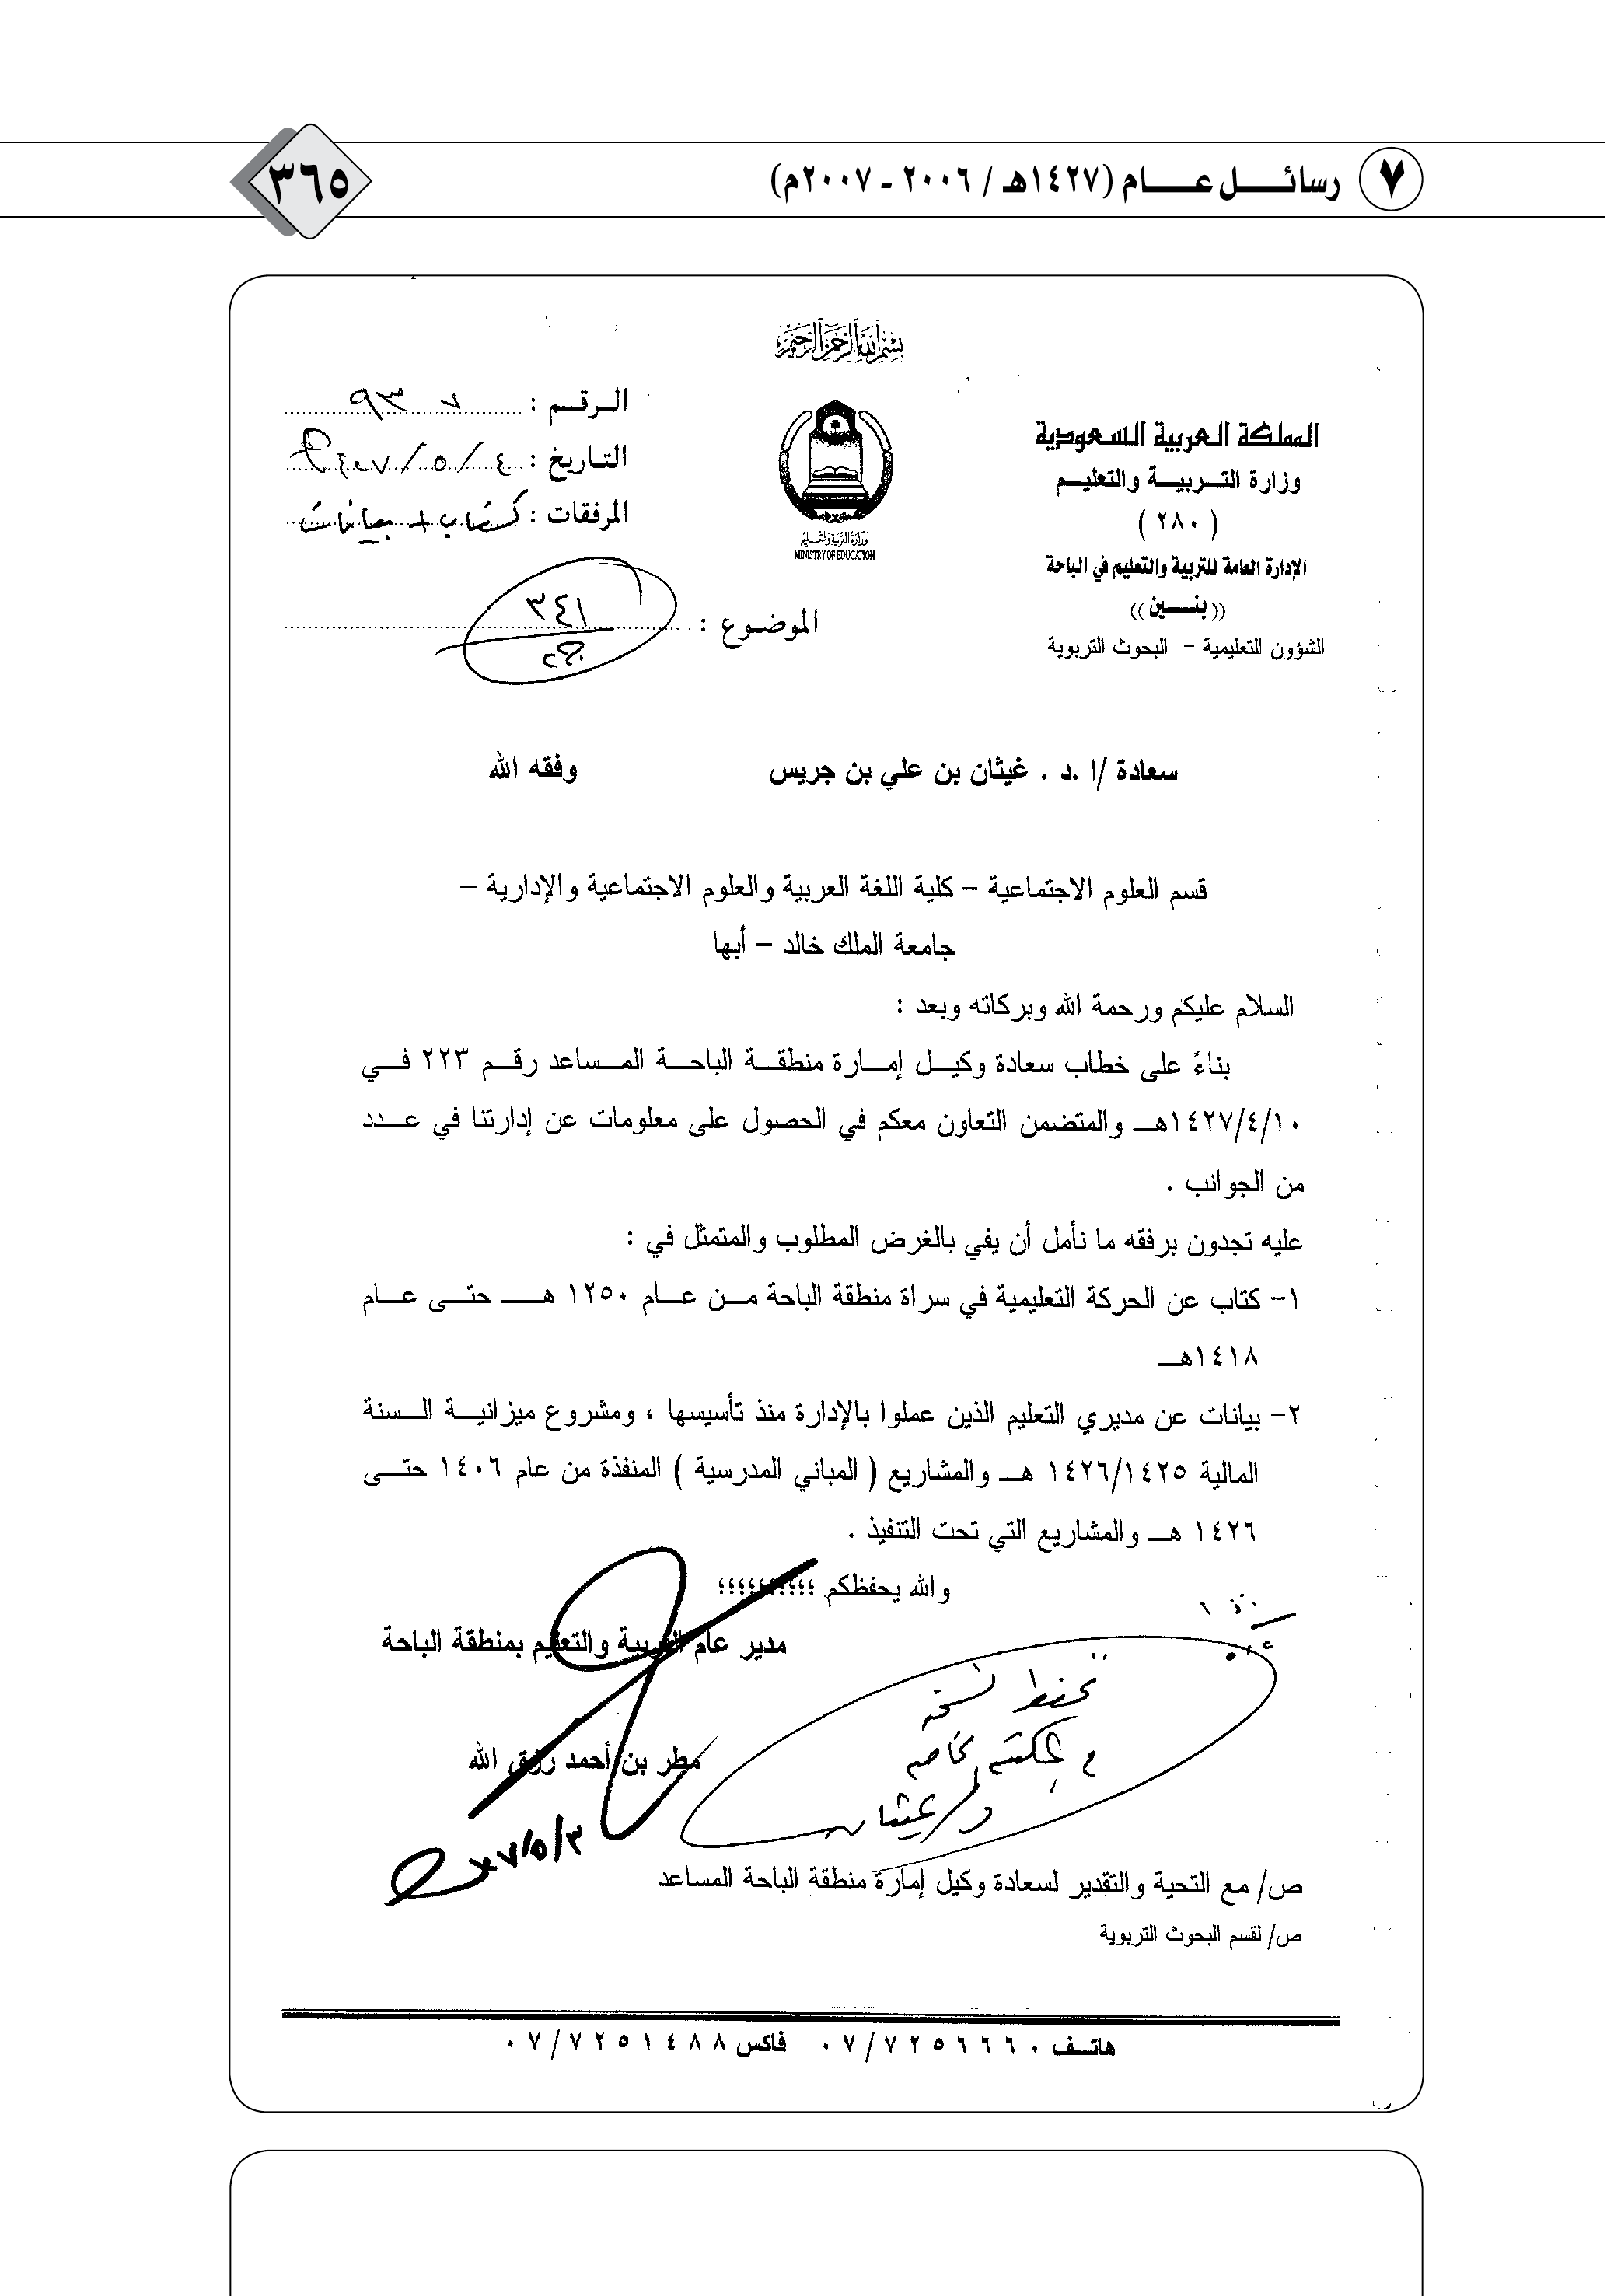 ٧ رسائل عام (١٤٢٧هـ / ٢٠٠٦ - ٢٠٠٧م)
٣٦٥
بسم الله الرحمن الرحيم
المملكة العربية السعودية
وزارة التربية والتعليم
( ٢٨٠ )
الإدارة العامة للتربية والتعليم في الباحة
((بنين))
الشؤون التعليمية - البحوث التربوية
وزارة التربية والتعليم
MINISTRY OF EDUCATION
الرقم :
التاريخ :
المرفقات : كتاب + بيانات
الموضوع :
٣٤١
سعادة /ا .د . غيثان بن علي بن جريس وفقه الله
قسم العلوم الاجتماعية – كلية اللغة العربية والعلوم الاجتماعية والإدارية –
جامعة الملك خالد – أبها
السلام عليكم ورحمة الله وبركاته وبعد :
بناءً على خطاب سعادة وكيل إمارة منطقة الباحة المساعد رقم ٢٢٣ في
١٤٢٧/٤/١٠هـ والمتضمن التعاون معكم في الحصول على معلومات عن إدارتنا في عدد
من الجوانب .
عليه تجدون برفقه ما نأمل أن يفي بالغرض المطلوب والمتمثل في :
١- كتاب عن الحركة التعليمية في سراة منطقة الباحة من عام ١٢٥٠ هـ حتى عام
١٤١٨هـ
٢- بيانات عن مديري التعليم الذين عملوا بالإدارة منذ تأسيسها ، ومشروع ميزانية السنة
المالية ١٤٢٦/١٤٢٥ هـ والمشاريع ( المباني المدرسية ) المنفذة من عام ١٤٠٦ حتى
١٤٢٦ هـ والمشاريع التي تحت التنفيذ .
والله يحفظكم ؛؛؛؛؛؛؛؛؛؛
مدير عام التربية والتعليم بمنطقة الباحة
مطر بن أحمد رزق الله
تحفظ نسخة
ص/ مع التحية والتقدير لسعادة وكيل إمارة منطقة الباحة المساعد
ص/ لقسم البحوث التربوية
هاتف ٠٧/٧٢٥٦٦٦٠ فاكس ٠٧/٧٢٥١٤٨٨